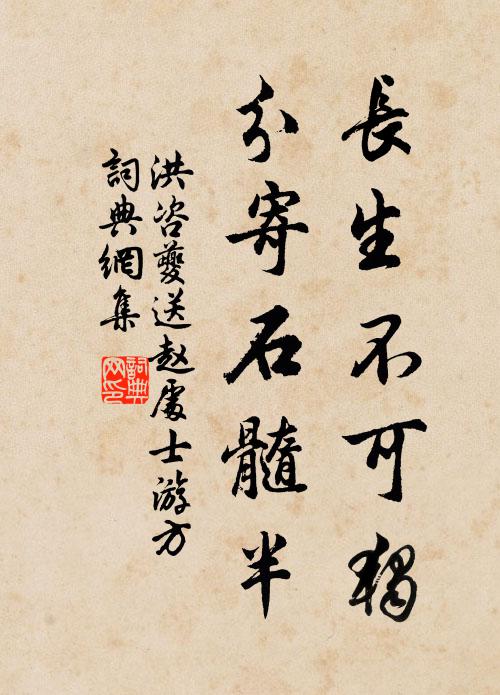 長生不可獨
分寄石髓半
洪咨夔送赵處士游方
詞典網集
詞典網印